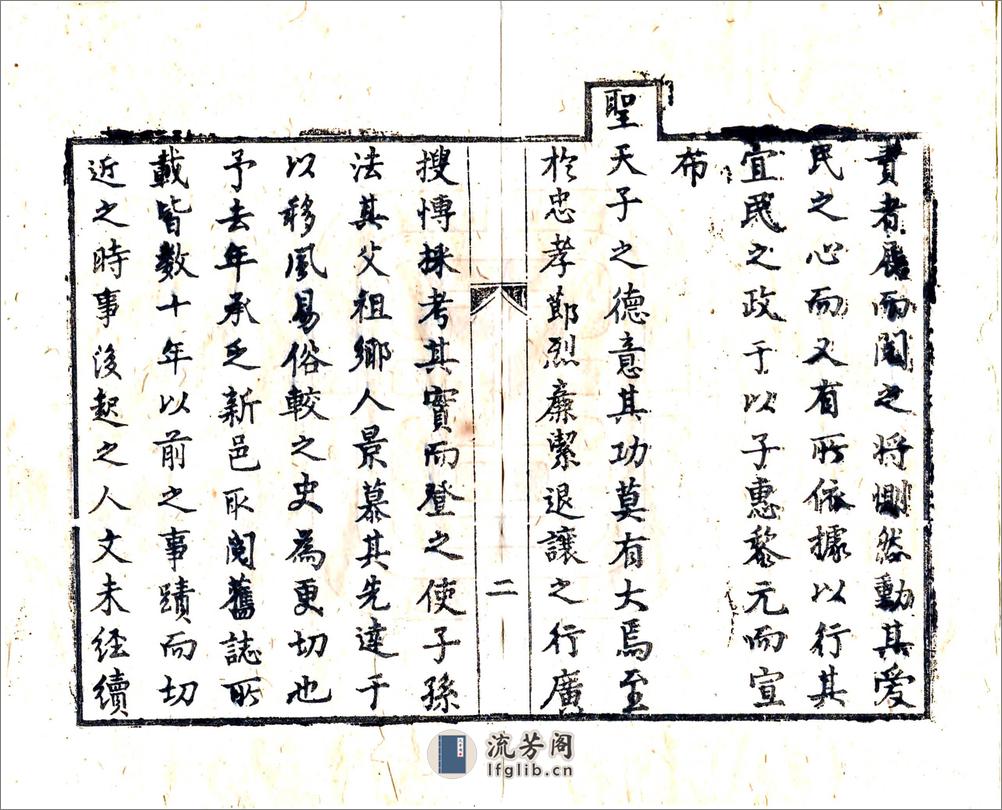 責者展而閱之將惻然動其愛
民之心而又有所依據以行其
宜民之政于以子惠黎元而宣
布
聖天子之德意其功莫有大焉至
於忠孝節烈廉潔退讓之行廣
二
搜愽採考其實而登之使子孫
法其父祖鄉人景慕其先達于
以移風易俗較之史為更切也
予去年承乏新邑取閱舊誌所
載皆數十年以前之事蹟而切
近之時事後起之人文未經續
流芳阁
lfglib.cn